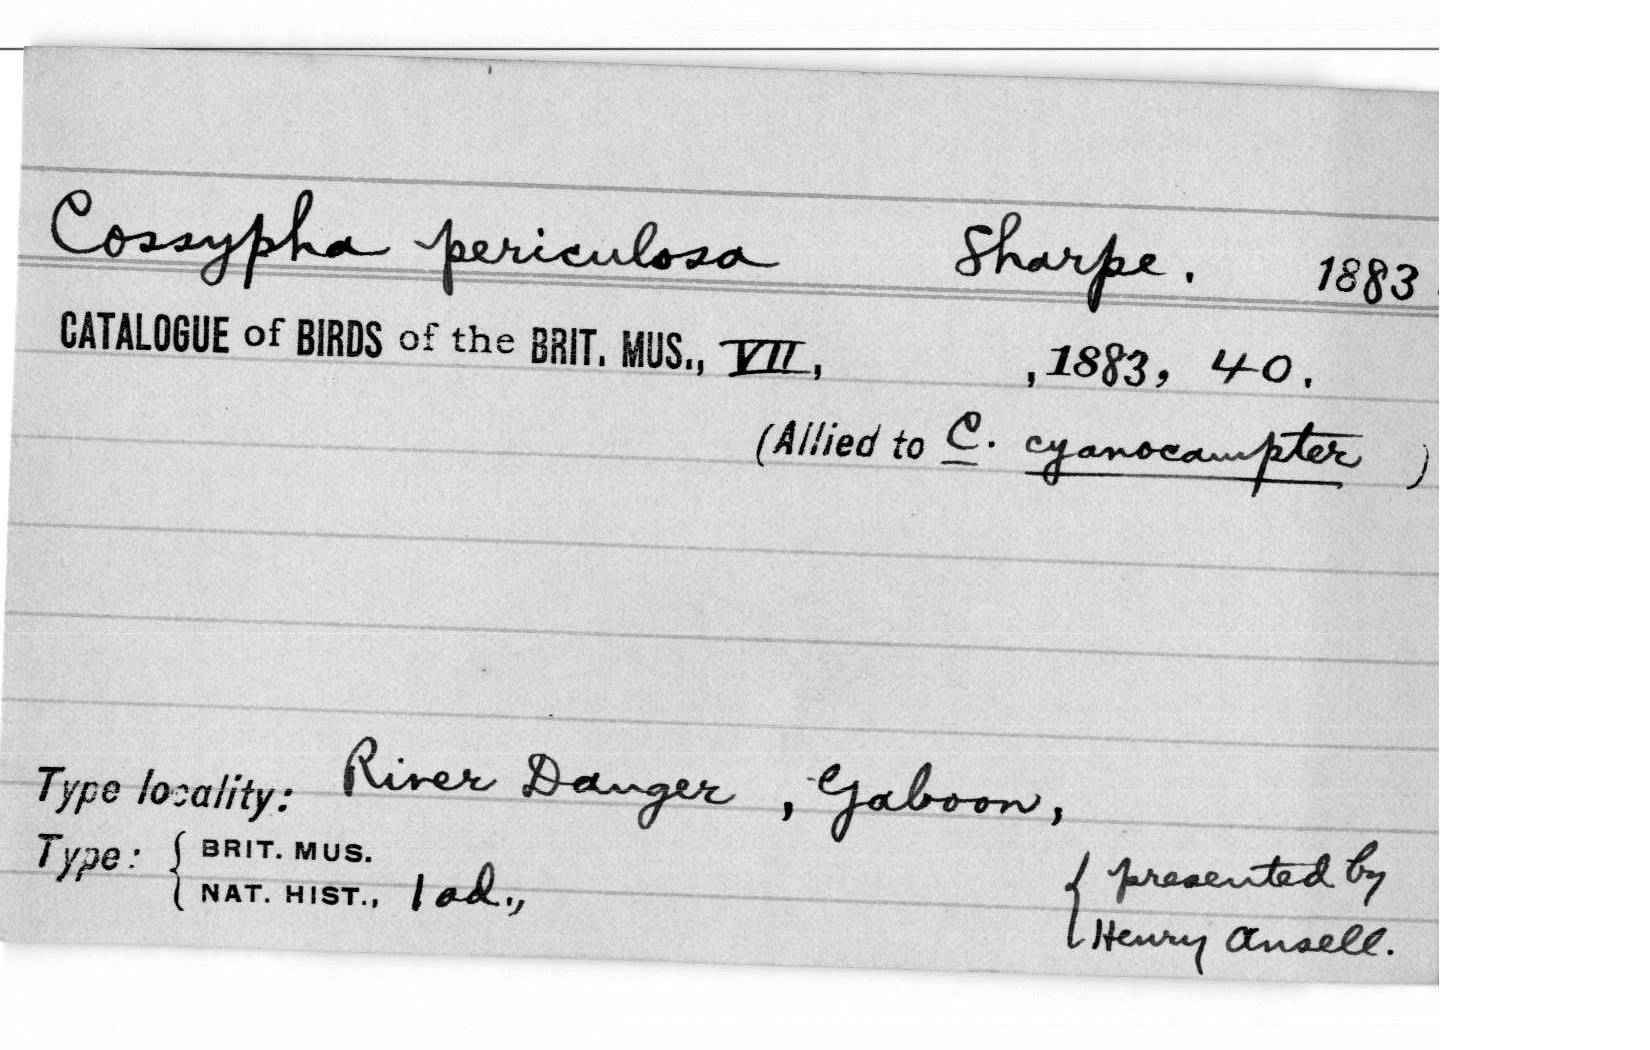 Cossypha periculosa Sharpe. 1883.
CATALOGUE of BIRDS of the BRIT. MUS., VII, , 1883, 40.
(Allied to C. cyanocampter )
Type locality: River Danger , Gaboon,
Type: { BRIT. MUS.
NAT. HIST., 1 ad.,
{ presented by
Henry Ansell.